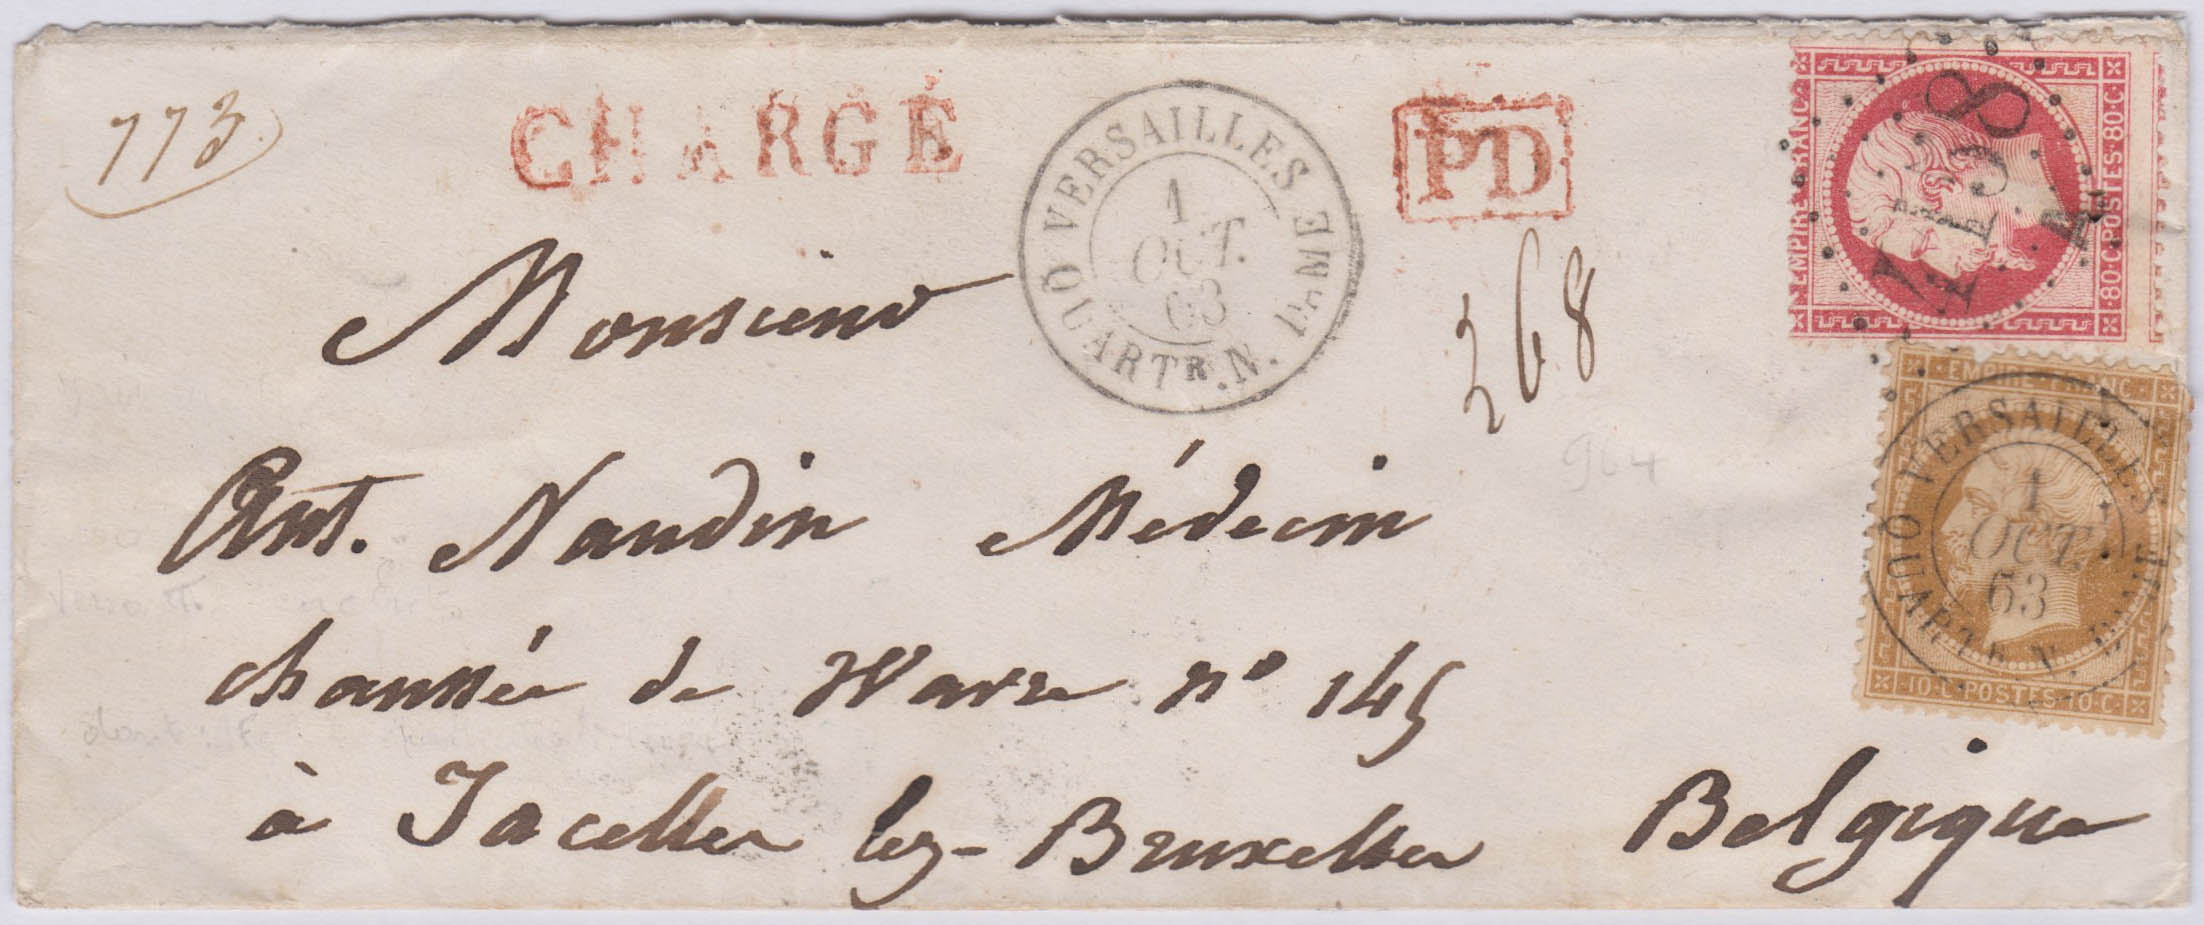 773.
CHARGÉ
VERSAILLES
QUARTR. N.
1
OCT.
63
PD
268
EMPIRE FRANC
80·C·POSTES·80·C·
4158
EMPIRE FRANC
10·C·POSTES·10·C·
VERSAILLES
1
OCT.
63
Monsieur
Ant. Naudin Médecin
964
chaussée de Wavre n° 145
à Jxcelles lez-Bruxelles
Belgique